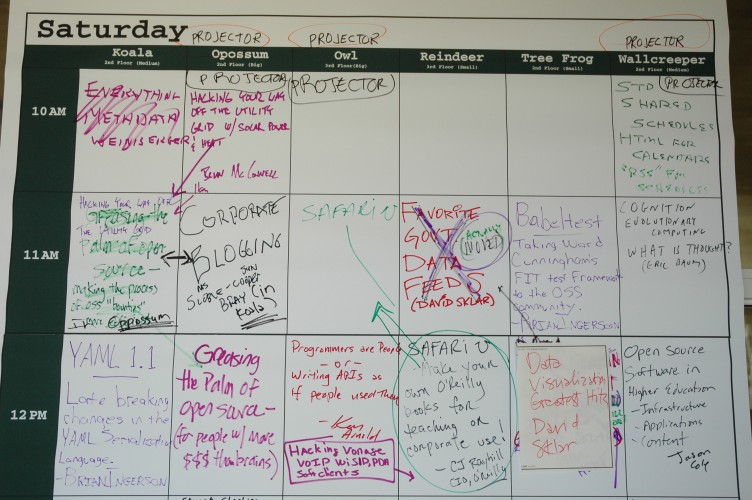 Saturday
PROJECTOR
PROJECTOR
PROJECTOR
Koala
2nd Floor (Medium)
Opossum
2nd Floor (Big)
Owl
2nd Floor(Big)
Reindeer
2nd Floor (Small)
Tree Frog
2nd Floor (Small)
Wallcreeper
2nd Floor (Medium)
10AM
EVERYTHING
METADATA
WEINBERGER
PROJECTOR
HACKING YOUR WAY
OFF THE UTILITY
GRID W/ SOLAR POWER
& HEAT
McConnell
PROJECTOR
STD
PROJECTOR
SHARED
SCHEDULES
HTML FOR
CALENDARS
"RSS" FOR
SCHEDULES
11AM
HACKING YOUR WAY OFF
THE UTILITY GRID
Greasing the
Palm of open
source -
making the process
of OSS "bounties"
Opossum
CORPORATE
BLOGGING
MS
SUN
COOPER
BRAY (in
Koala)
SAFARI U
FAVORITE
GOV'T
DATA
FEEDS
(DAVID SKLAR)
ACTUALLY
Babeltest
Taking Ward
Cunningham's
FIT test Framework
to the OSS
Community.
- BRIAN INGERSON
COGNITION
EVOLUTIONARY
COMPUTING
WHAT IS THOUGHT?
(ERIC BAUM)
12PM
YAML 1.1
Late breaking
changes in the
YAML Serialization
Language.
- BRIAN INGERSON
Greasing
the Palm of
open source -
(for people w/ more
$$$ than brains)
Programmers are People
- or -
Writing APIs as
If people used Them
Ken
Arnold
Hacking Vonage
VoIP w/ SIP, PDA
Softclients
SAFARI U
Make your
own O'Reilly
books for
teaching or
corporate use!
- CJ Rayhill
CIO, O'Reilly
Data
Visualization
Greatest Hits
David
Sklar
Open Source
Software in
Higher Education
- Infrastructure
- Applications
- Content
Jason
Cole